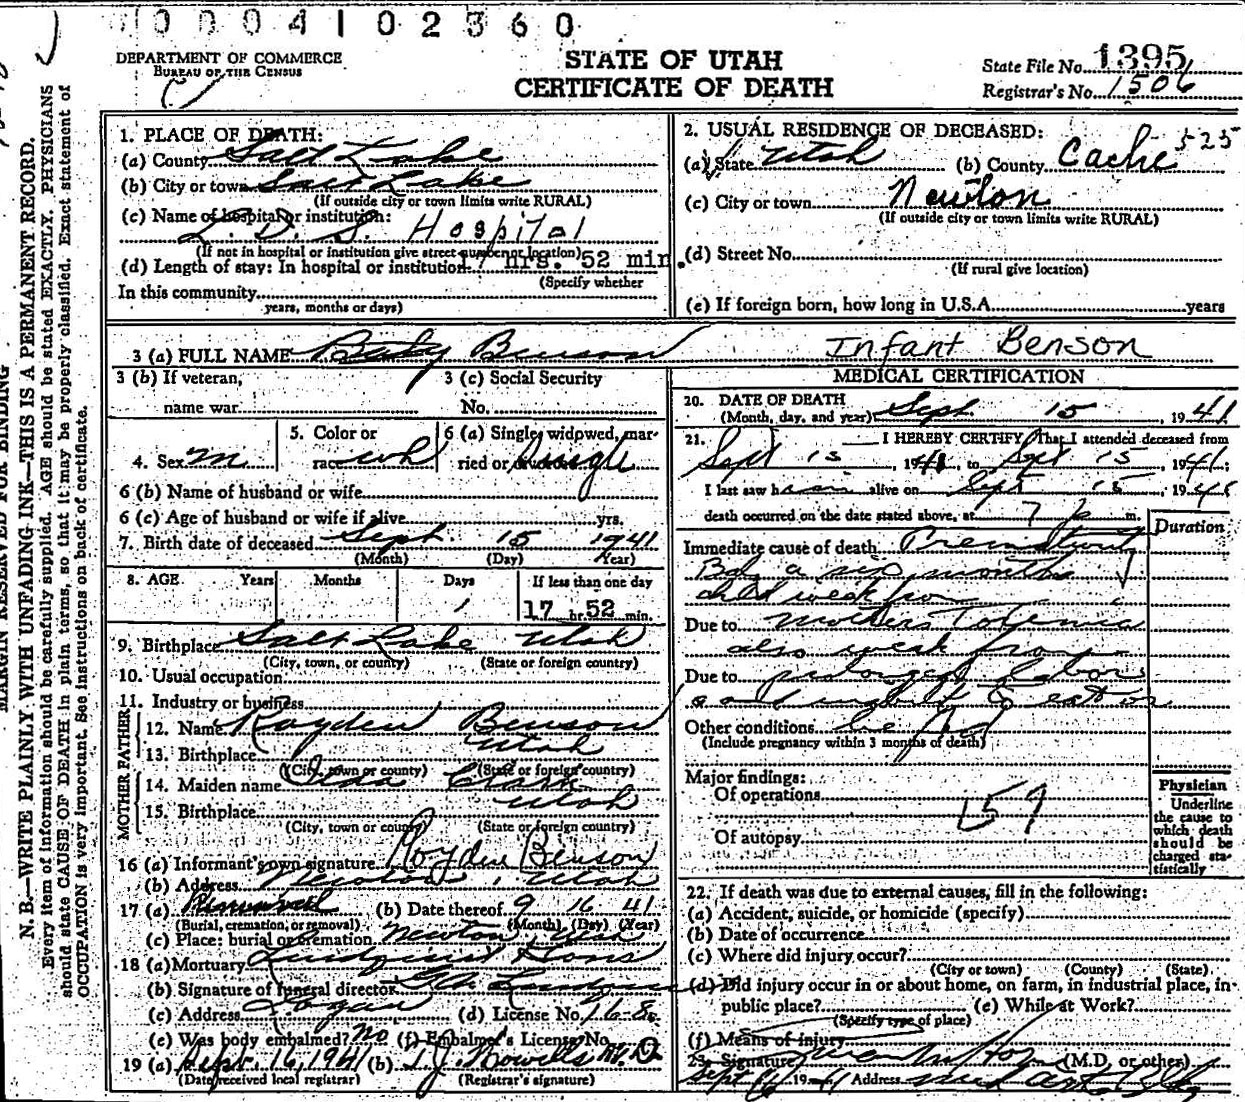 0004102360
DEPARTMENT OF COMMERCE
BUREAU OF THE CENSUS
STATE OF UTAH
CERTIFICATE OF DEATH
State File No. 1395
Registrar's No. 1506
MARGIN RESERVED FOR BINDING
N. B.—WRITE PLAINLY WITH UNFADING INK—THIS IS A PERMANENT RECORD.
Every item of information should be carefully supplied. AGE should be stated EXACTLY. PHYSICIANS
should state CAUSE OF DEATH in plain terms, so that it may be properly classified. Exact statement of
OCCUPATION is very important. See instructions on back of certificate.
1. PLACE OF DEATH:
(a) County Salt Lake
(b) City or town Salt Lake
(If outside city or town limits write RURAL)
(c) Name of hospital or institution:
L. D. S. Hospital
(If not in hospital or institution give street number or location)
(d) Length of stay: In hospital or institution 17 hrs. 52 min.
(Specify whether
In this community
years, months or days)
2. USUAL RESIDENCE OF DECEASED:
(a) State Utah (b) County Cache 525
(c) City or town Newton
(If outside city or town limits write RURAL)
(d) Street No.
(If rural give location)
(e) If foreign born, how long in U.S.A. years
3 (a) FULL NAME Baby Benson Infant Benson
3 (b) If veteran, 3 (c) Social Security
name war No.
4. Sex m 5. Color or race wh 6 (a) Single, widowed, married or Single
6 (b) Name of husband or wife
6 (c) Age of husband or wife if alive yrs.
7. Birth date of deceased Sept. 15 1941
(Month) (Day) (Year)
8. AGE Years Months Days If less than one day
1 17 hr. 52 min.
9. Birthplace Salt Lake Utah
(City, town, or county) (State or foreign country)
10. Usual occupation
11. Industry or business
FATHER
12. Name Rayden Benson
13. Birthplace Utah
(City, town or county) (State or foreign country)
MOTHER
14. Maiden name Clark
15. Birthplace Utah
(City, town or county) (State or foreign country)
16 (a) Informant's own signature Royden Benson
(b) Address Newton, Utah
17 (a) Removal (b) Date thereof 9 16 41
(Burial, cremation, or removal) (Month) (Day) (Year)
(c) Place: burial or cremation Newton Utah
18 (a) Mortuary Lindquist & Sons
(b) Signature of funeral director
(c) Address Logan (d) License No. 168
(e) Was body embalmed? no (f) Embalmer's License No.
19 (a) Sept. 16, 1941 (b) T. J. Howells M. D.
(Date received local registrar) (Registrar's signature)
MEDICAL CERTIFICATION
20. DATE OF DEATH
(Month, day, and year) Sept 15, 1941
21. I HEREBY CERTIFY, That I attended deceased from
Sept 15, 1941, to Sept 15, 1941;
I last saw him alive on Sept 15, 1941
death occurred on the date stated above, at 7 p m.
Duration
Immediate cause of death Prematurity
a six months
child weak from
Due to mothers Toxemia
also weak from
Due to prolonged labor
and
Other conditions
(Include pregnancy within 3 months of death)
Major findings:
Of operations 159
Of autopsy
Physician
Underline
the cause to
which death
should be
charged sta-
tistically
22. If death was due to external causes, fill in the following:
(a) Accident, suicide, or homicide (specify)
(b) Date of occurrence
(c) Where did injury occur?
(City or town) (County) (State)
(d) Did injury occur in or about home, on farm, in industrial place, in
public place? (e) While at Work?
(Specify type of place)
(f) Means of injury
23. Signature (M.D. or other)
Sept 16 1941 Address